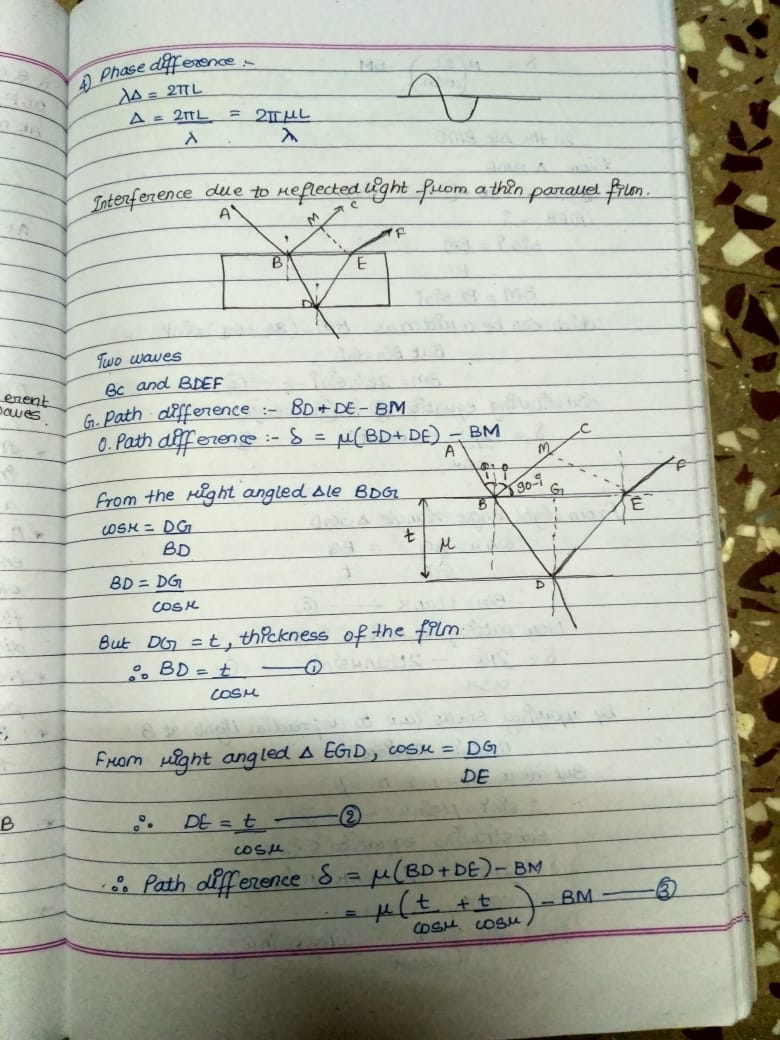 4) Phase difference :-
λΔ = 2πL
Δ = 2πL/λ = 2πμL/λ
Interference due to reflected light from a thin parallel film.
A M C F
B E
D
Two waves
BC and BDEF
G. Path difference :- BD + DE - BM
O. Path difference :- δ = μ(BD + DE) - BM
A M C F
i i 90-i G
B E
t μ
D
From the right angled Δle BDG
cosr = DG/BD
BD = DG/cosr
But DG = t, thickness of the film
∴ BD = t/cosr —— ①
From right angled Δ EGD, cosr = DG/DE
∴ DE = t/cosr —— ②
∴ Path difference δ = μ(BD + DE) - BM
= μ(t/cosr + t/cosr) - BM —— ③
erent
waves.
B